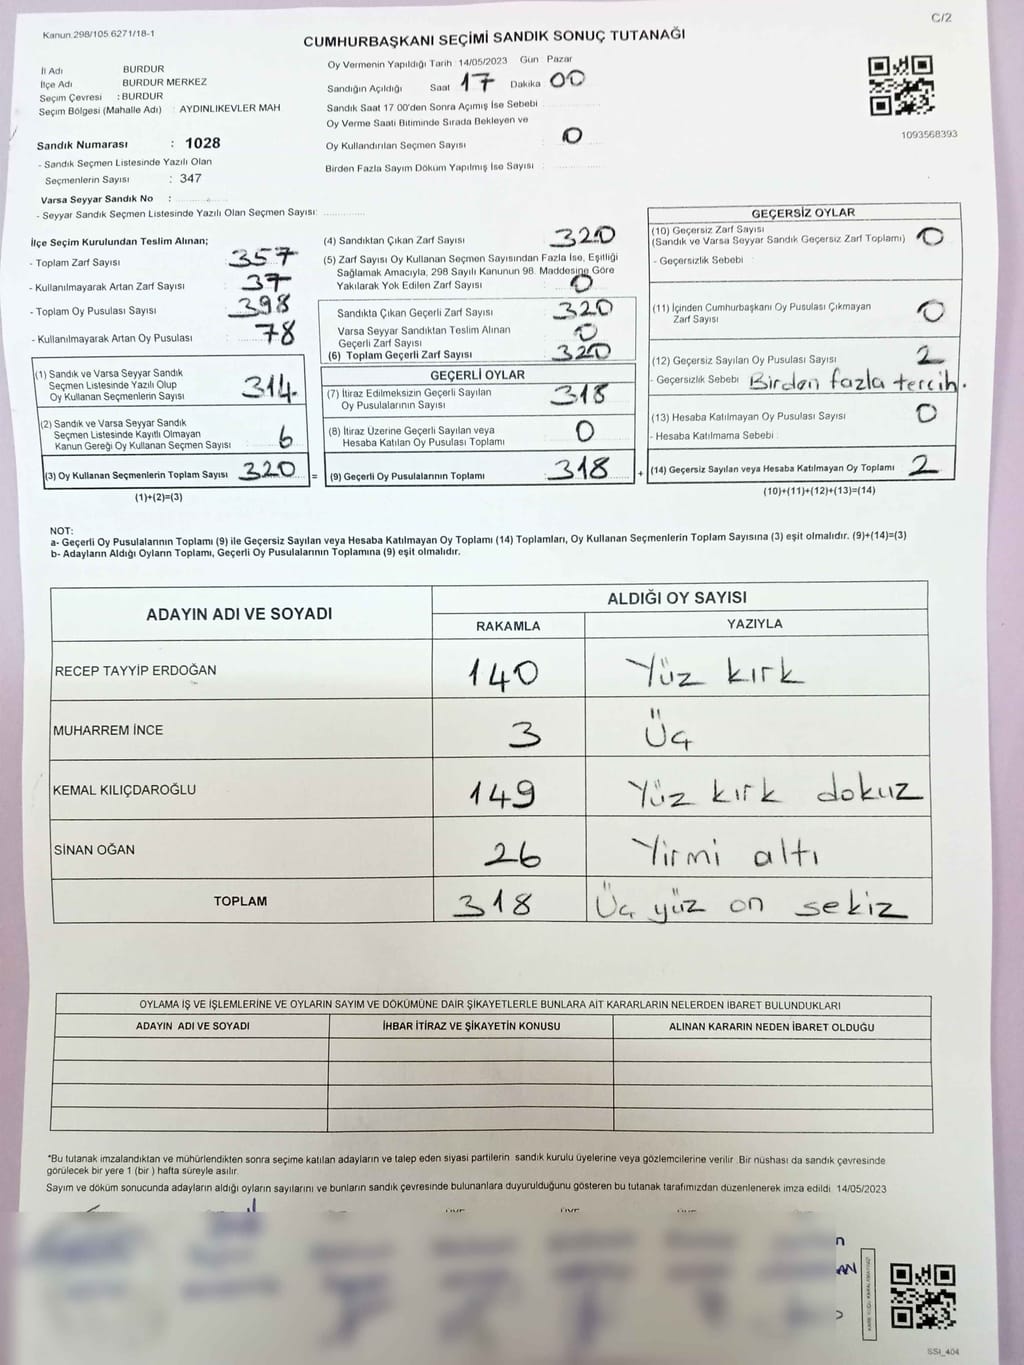 C/2
Kanun 298/105 6271/18-1
CUMHURBAŞKANI SEÇİMİ SANDIK SONUÇ TUTANAĞI
İl Adı BURDUR
İlçe Adı BURDUR MERKEZ
Seçim Çevresi : BURDUR
Seçim Bölgesi (Mahalle Adı) : AYDINLIKEVLER MAH
Sandık Numarası : 1028
- Sandık Seçmen Listesinde Yazılı Olan
Seçmenlerin Sayısı : 347
Varsa Seyyar Sandık No :
- Seyyar Sandık Seçmen Listesinde Yazılı Olan Seçmen Sayısı:
Oy Vermenin Yapıldığı Tarih 14/05/2023 Gün Pazar
Sandığın Açıldığı Saat 17 Dakika 00
Sandık Saat 17 00'den Sonra Açımış İse Sebebi
Oy Verme Saati Bitiminde Sırada Bekleyen ve
Oy Kullandırılan Seçmen Sayısı 0
Birden Fazla Sayım Döküm Yapılmış İse Sayısı
1093568393
İlçe Seçim Kurulundan Teslim Alınan;
- Toplam Zarf Sayısı 357
- Kullanılmayarak Artan Zarf Sayısı 37
- Toplam Oy Pusulası Sayısı 398
- Kullanılmayarak Artan Oy Pusulası 78
(1) Sandık ve Varsa Seyyar Sandık
Seçmen Listesinde Yazılı Olup
Oy Kullanan Seçmenlerin Sayısı 314
(2) Sandık ve Varsa Seyyar Sandık
Seçmen Listesinde Kayıtlı Olmayan
Kanun Gereği Oy Kullanan Seçmen Sayısı 6
(3) Oy Kullanan Seçmenlerin Toplam Sayısı 320 =
(1)+(2)=(3)
(4) Sandıktan Çıkan Zarf Sayısı 320
(5) Zarf Sayısı Oy Kullanan Seçmen Sayısından Fazla İse, Eşitliği
Sağlamak Amacıyla, 298 Sayılı Kanunun 98. Maddesine Göre
Yakılarak Yok Edilen Zarf Sayısı 0
Sandıkta Çıkan Geçerli Zarf Sayısı 320
Varsa Seyyar Sandıktan Teslim Alınan
Geçerli Zarf Sayısı 0
(6) Toplam Geçerli Zarf Sayısı 320
GEÇERLİ OYLAR
(7) İtiraz Edilmeksizin Geçerli Sayılan
Oy Pusulalarının Sayısı 318
(8) İtiraz Üzerine Geçerli Sayılan veya
Hesaba Katılan Oy Pusulası Toplamı 0
(9) Geçerli Oy Pusulalarının Toplamı 318 +
GEÇERSİZ OYLAR
(10) Geçersiz Zarf Sayısı
(Sandık ve Varsa Seyyar Sandık Geçersiz Zarf Toplamı) 0
- Geçersizlik Sebebi
(11) İçinden Cumhurbaşkanı Oy Pusulası Çıkmayan
Zarf Sayısı 0
(12) Geçersiz Sayılan Oy Pusulası Sayısı 2
- Geçersizlik Sebebi Birden fazla tercih.
(13) Hesaba Katılmayan Oy Pusulası Sayısı 0
- Hesaba Katılmama Sebebi
(14) Geçersiz Sayılan veya Hesaba Katılmayan Oy Toplamı 2
(10)+(11)+(12)+(13)=(14)
NOT:
a- Geçerli Oy Pusulalarının Toplamı (9) ile Geçersiz Sayılan veya Hesaba Katılmayan Oy Toplamı (14) Toplamları, Oy Kullanan Seçmenlerin Toplam Sayısına (3) eşit olmalıdır. (9)+(14)=(3)
b- Adayların Aldığı Oyların Toplamı, Geçerli Oy Pusulalarının Toplamına (9) eşit olmalıdır.
ADAYIN ADI VE SOYADI ALDIĞI OY SAYISI
RAKAMLA YAZIYLA
RECEP TAYYİP ERDOĞAN 140 Yüz kırk
MUHARREM İNCE 3 Üç
KEMAL KILIÇDAROĞLU 149 Yüz kırk dokuz
SİNAN OĞAN 26 Yirmi altı
TOPLAM 318 Üç yüz on sekiz
OYLAMA İŞ VE İŞLEMLERİNE VE OYLARIN SAYIM VE DÖKÜMÜNE DAİR ŞİKAYETLERLE BUNLARA AİT KARARLARIN NELERDEN İBARET BULUNDUKLARI
ADAYIN ADI VE SOYADI İHBAR İTİRAZ VE ŞİKAYETİN KONUSU ALINAN KARARIN NEDEN İBARET OLDUĞU
*Bu tutanak imzalandıktan ve mühürlendikten sonra seçime katılan adayların ve talep eden siyasi partilerin sandık kurulu üyelerine veya gözlemcilerine verilir. Bir nüshası da sandık çevresinde
görülecek bir yere 1 (bir) hafta süreyle asılır.
Sayım ve döküm sonucunda adayların aldığı oyların sayılarını ve bunların sandık çevresinde bulunanlara duyurulduğunu gösteren bu tutanak tarafımızdan düzenlenerek imza edildi 14/05/2023
SSI_404